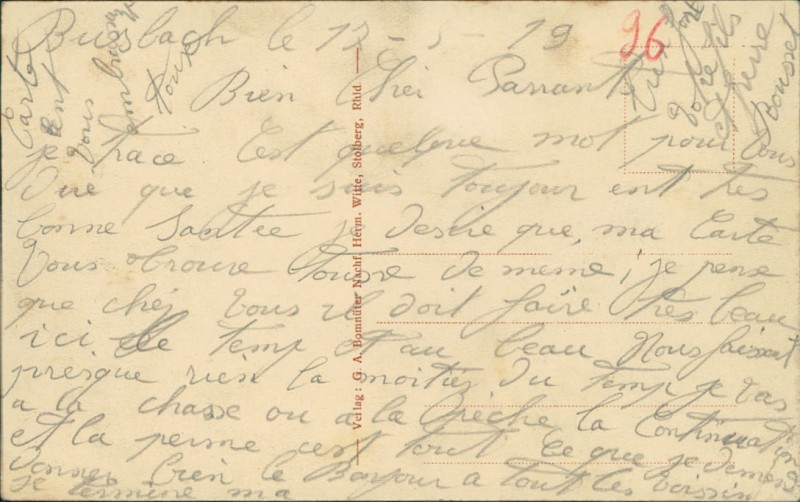 Busbach le 13 - 5 - 19
96
Bien Cher Parrant
je trace c'est quelque mot pour vous
dire que je suis toujour ent tres
bonne Santée je desire que, ma Carte
Vous trouve tousse de meme, je pense
que chéz vous il doit faire très beau
ici le temp et au beau Nous faisont
presque rien la moitiéz du temp je vas
a la chasse ou a la pèche la Continuation
et la perme cest tout ce que je demende
donner bien le Bonjour a tout les voissin
je termine ma
Carte ent
vous embrasse
tous
Votre fils
Pierre
Bousset
Verlag: G. A. Bomnüter Nachf. Herm. Witte, Stolberg, Rhld.